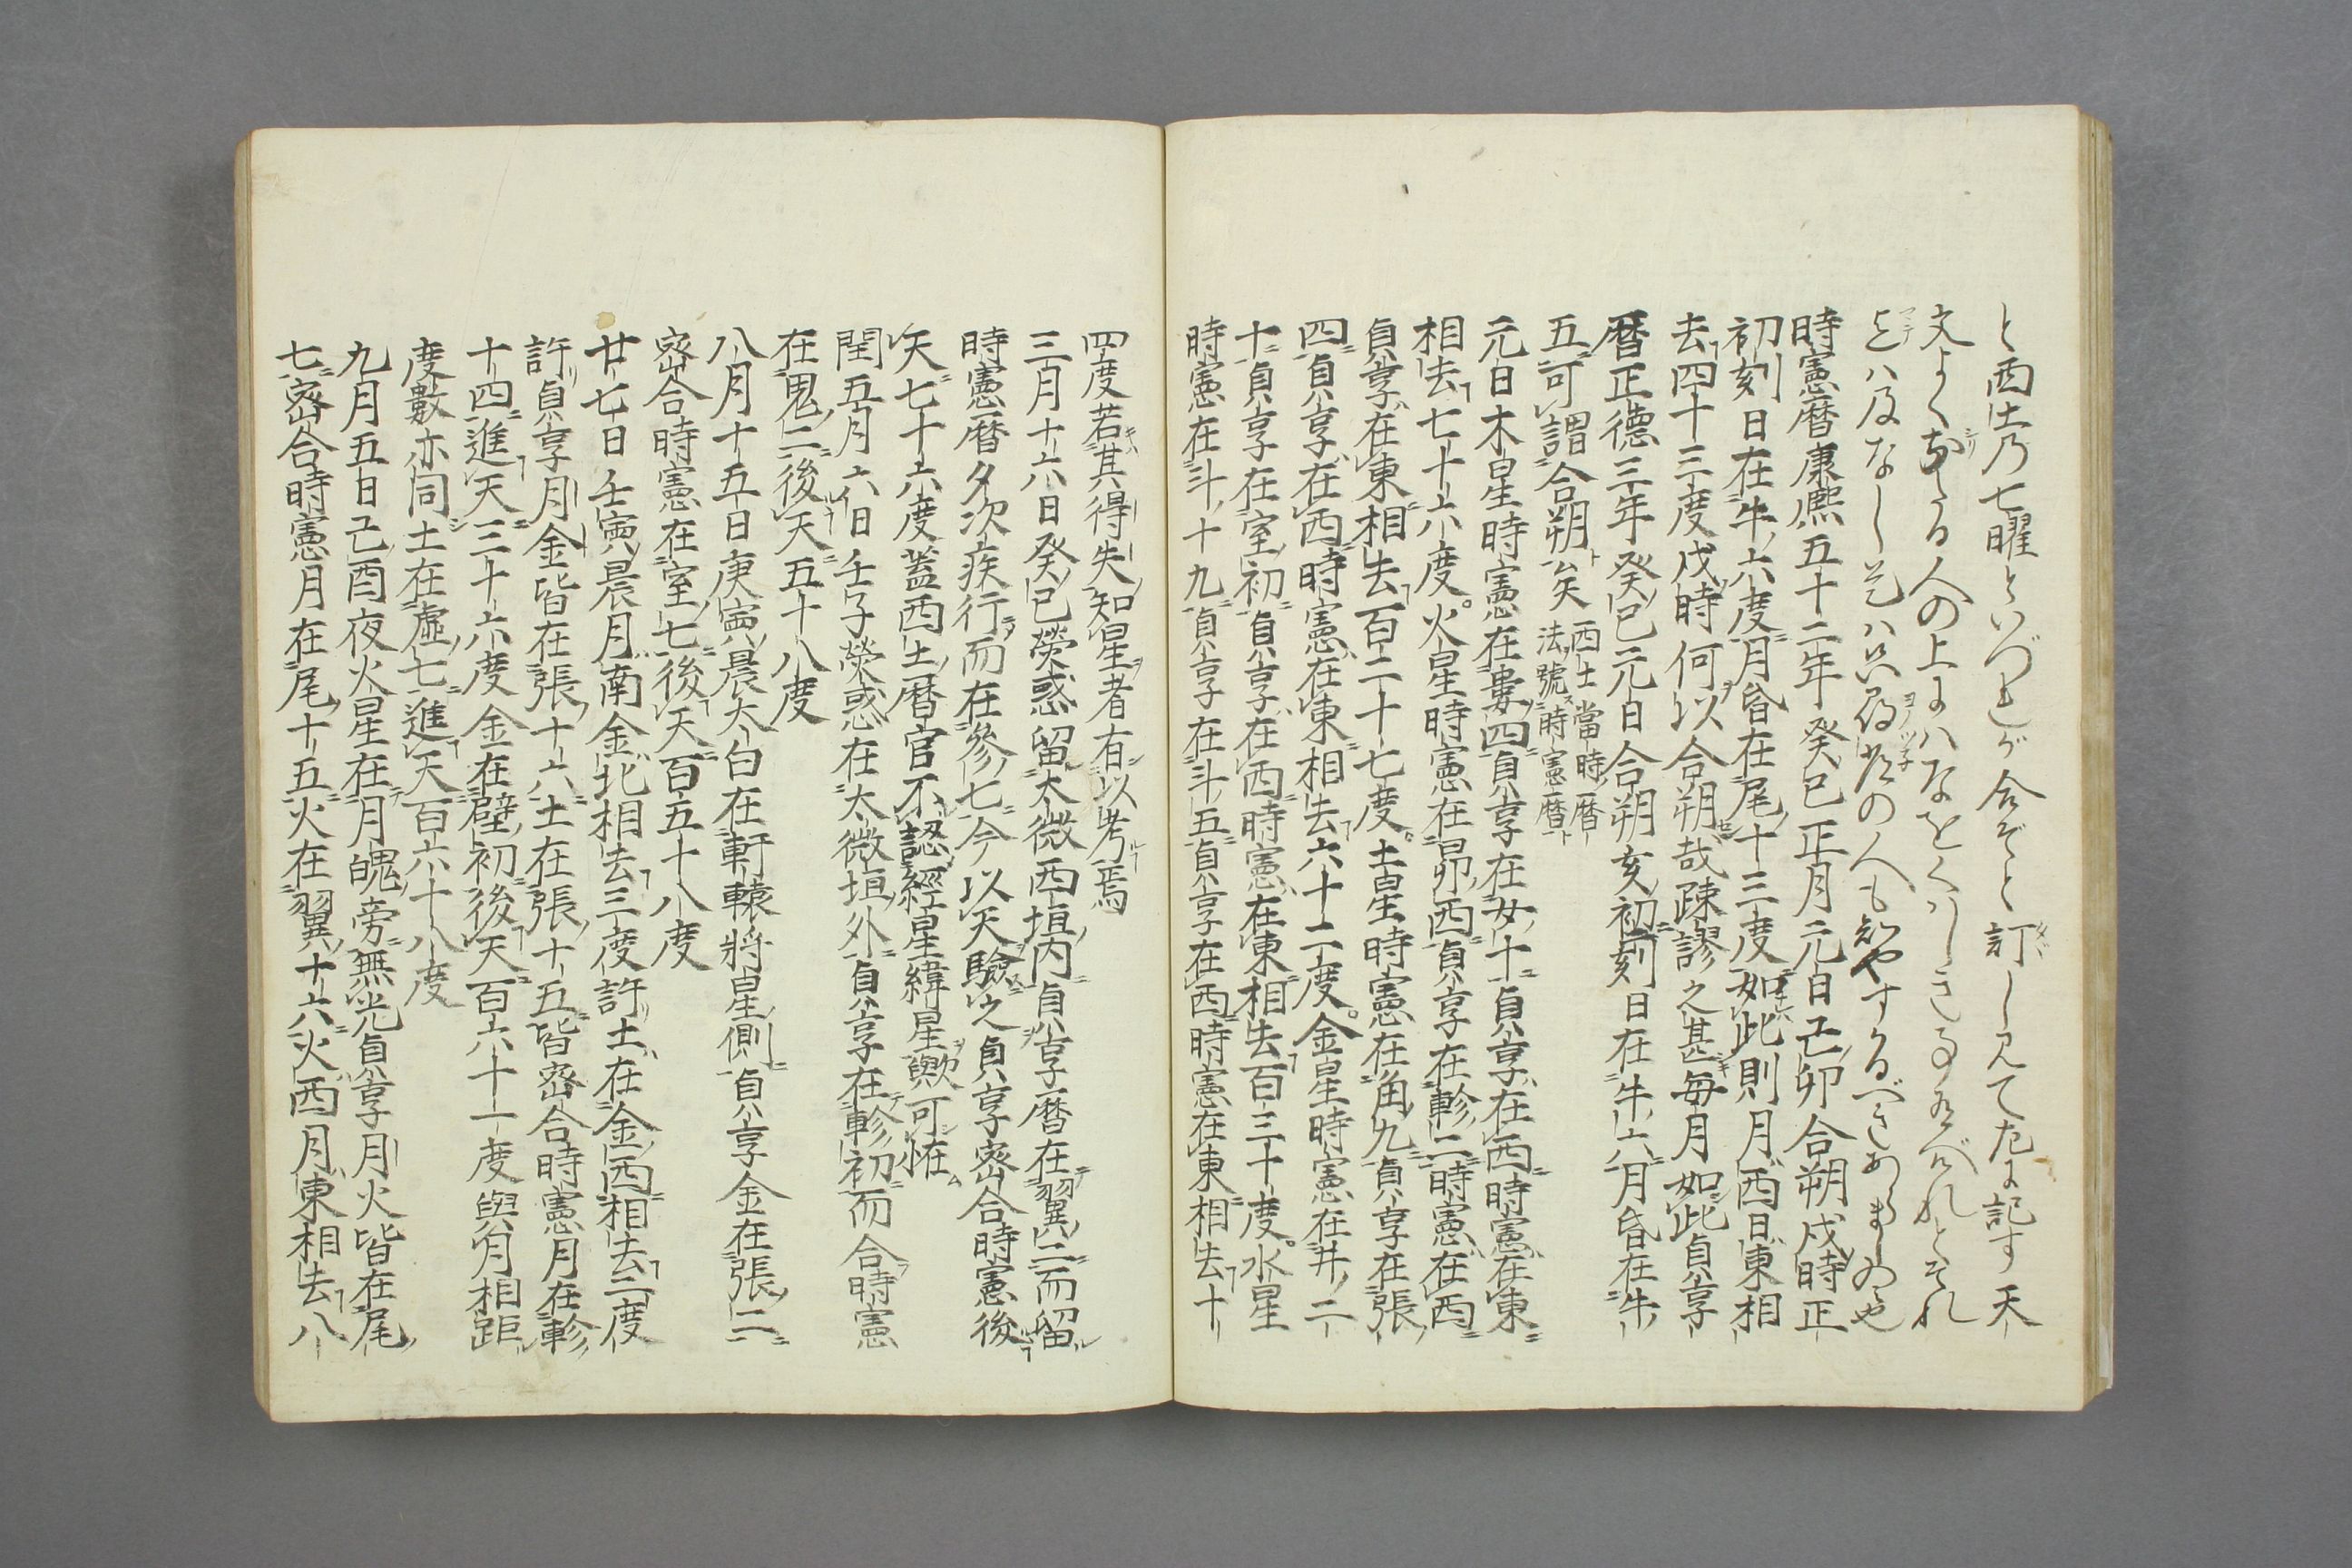 と西土乃七曜といづれが合ぞと訂し見て左に記す天
文よくある人の上にハなをくハしき事なるべけれとそれ
迄ハ及なし是ハ只尋常の人も知やすかるべきあましめや
時憲暦康熈五十二年癸巳正月元日己卯合朔戌時正
初刻日在牛六度月昏在尾十三度如此則月西日東相
去四十三度戌時何以合朔哉疎謬之甚毎月如此貞享
暦正德三年癸巳元日合朔亥初刻日在牛六月昏在牛
五可謂合朔矣西土當時暦法號時憲暦
元日木星時憲在婁四貞享在女十貞享在西時憲在東
相去七十六度。火星時憲在昴西貞享在軫二時憲在西
貞享在東相去百二十七度。土星時憲在角九貞享在張
四貞享在西時憲在東相去六十二度。金星時憲在井二
十貞享在室初貞享在西時憲在東相去百三十度。水星
時憲在斗十九貞享在斗五貞享在西時憲在東相去十
四度若其得失知星者有以考焉
三月十六日癸巳熒惑留太微西垣内貞享暦在翼二而留
時憲暦夕次疾行而在參七今以天驗之貞享密合時憲後
天七十六度蓋西土暦官不認經星緯星歟可恠
閏五月六日壬子熒惑在太微垣外貞享在軫初而合時憲
在鬼二後天五十八度
八月十五日庚寅晨太白在軒轅將星側貞享金在張二
密合時憲在室七後天百五十八度
廿七日壬寅晨月南金北相去三度許土在金西相去二度
許貞享月金皆在張十六土在張十五皆密合時憲月在軫
十四進天三十六度金在壁初後天百六十一度與月相距
度數亦同土在虛七進天百六十八度
九月五日己酉夜火星在月魄旁無光貞享月火皆在尾
七密合時憲月在尾十五火在翼十六火西月東相去八